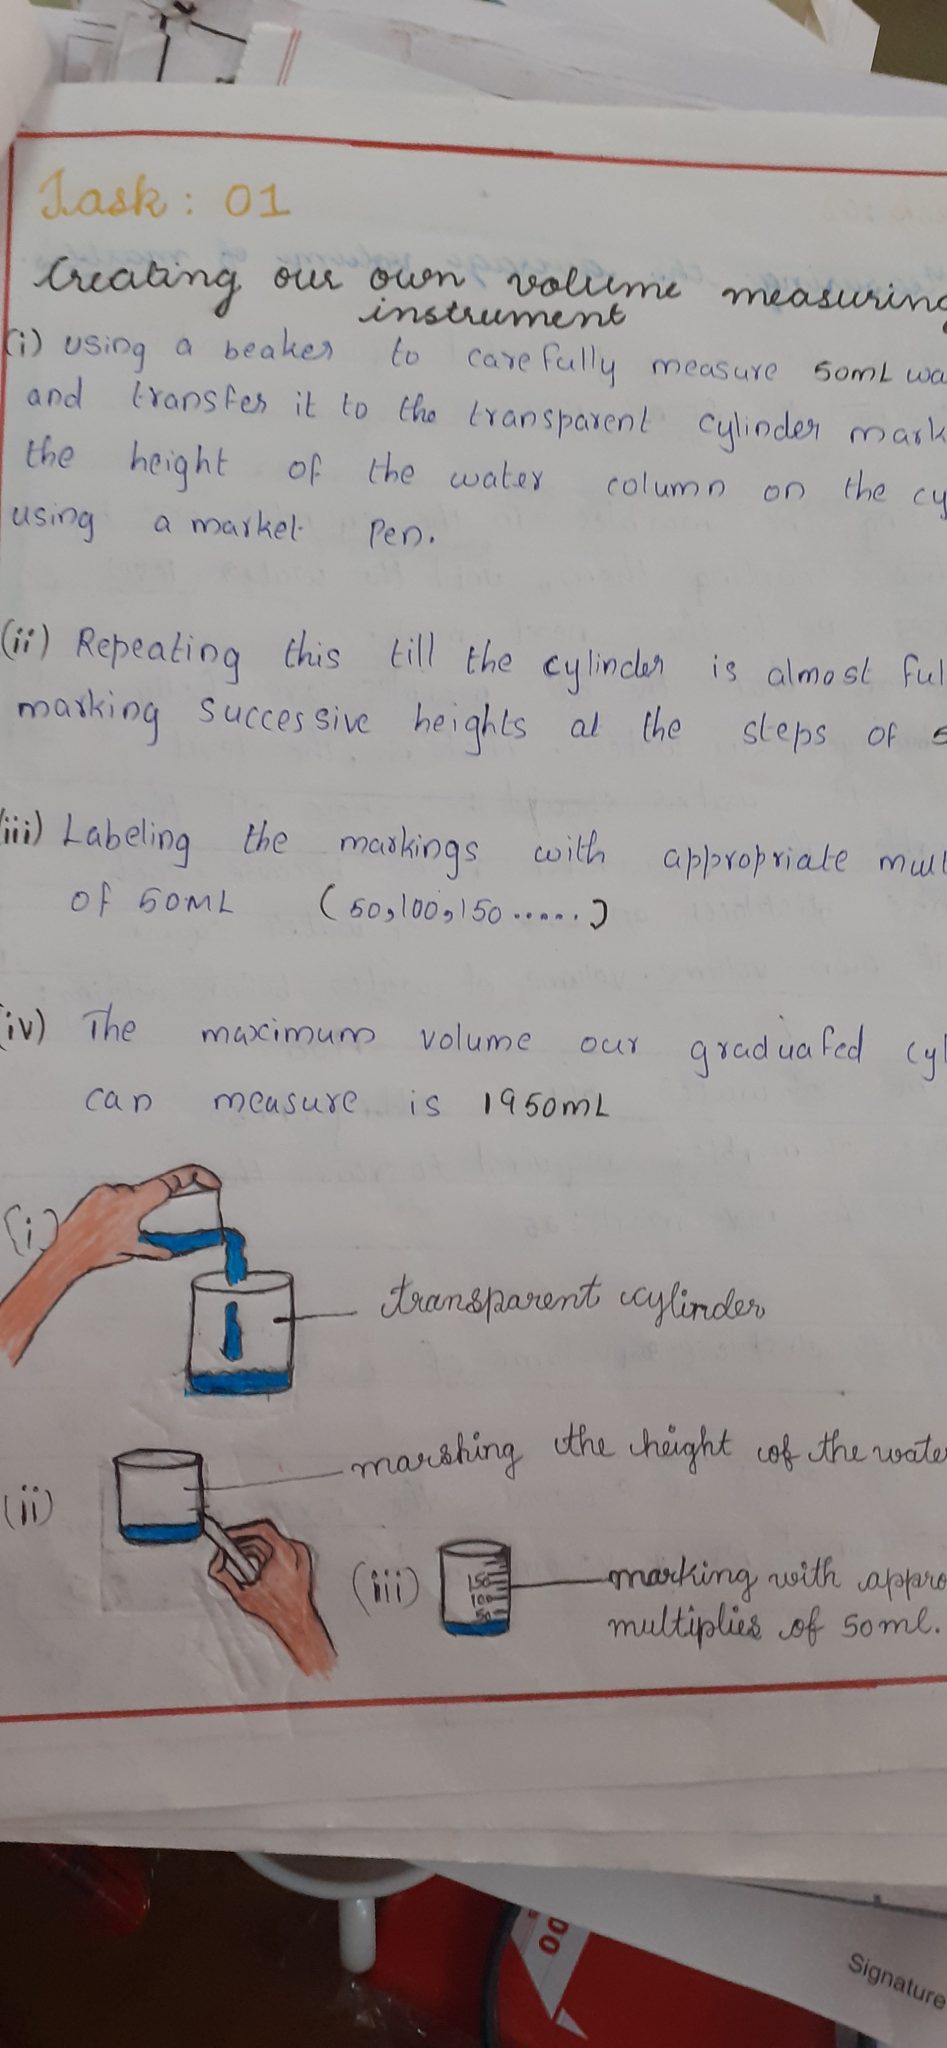 Task: 01
Creating our own volume measuring
instrument
(i) using a beaker to carefully measure 50mL wa
and transfer it to the transparent cylinder mark
the height of the water column on the cy
using a market pen.
(ii) Repeating this till the cylinder is almost ful
marking successive heights at the steps of 5
(iii) Labeling the markings with appropriate mult
of 50mL (50,100,150.....)
(iv) The maximum volume our graduated cyl
can measure is 1950mL
(i)
transparent cylinder
marshing the height of the wate
(ii)
(iii)
150
100
50
marking with appro
multiplies of 50ml.
00
Signature